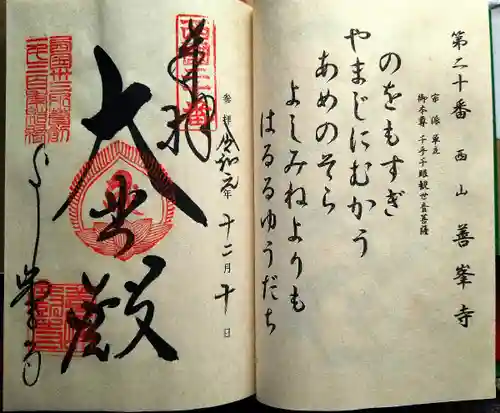 第二十番 西山 善峯寺
宗派 単立
御本尊 千手千眼観世音菩薩
のをもすぎ
やまじにむかう
あめのそら
よしみねよりも
はるるゆうだち
奉拝
参拝 令和元年 十二月 十日
大悲殿
よしみね寺